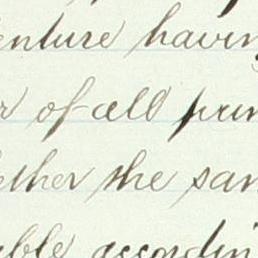 enture having
r of all prin
ether the sam
able accordin